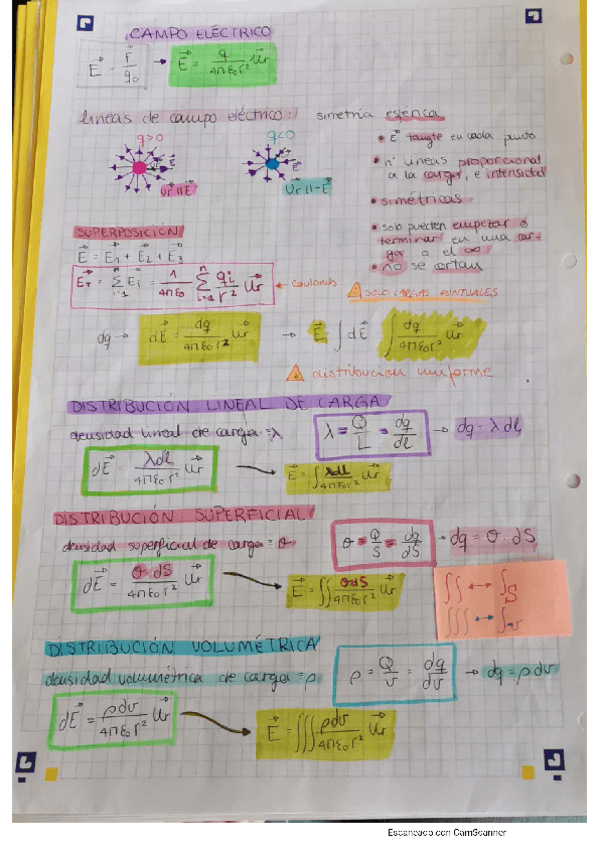 CAMPO ELÉCTRICO
E⃗ = F⃗/q₀ → E⃗ = q/4πε₀r² u⃗r
líneas de campo eléctrico: simetría esférica
q>0 q<0
u⃗r || E⃗ u⃗r || -E⃗
• E⃗ tangte en cada punto
• nº líneas proporcional
a la carga, e intensidad
• simétricas
• solo pueden empezar o
terminar en una car-
ga o el ∞
• no se cortan
SUPERPOSICIÓN
E⃗ = E⃗₁ + E⃗₂ + E⃗₃
E⃗T = Σⁿᵢ₌₁ E⃗i = 1/4πε₀ Σⁿᵢ₌₁ qi/r² u⃗r ← coulomb
⚠ SOLO CARGAS PUNTUALES
dq → dE⃗ = dq/4πε₀r² u⃗r → E⃗ ∫ dE⃗ ∫ dq/4πε₀r² u⃗r
⚠ distribución uniforme
DISTRIBUCIÓN LINEAL DE CARGA
densidad lineal de carga = λ
λ = Q/L = dq/dl → dq = λ dl
dE⃗ = λdl/4πε₀r² u⃗r → E⃗ = ∫ λdl/4πε₀r² u⃗r
DISTRIBUCIÓN SUPERFICIAL
densidad superficial de carga = θ
θ = Q/S = dq/dS → dq = θ · dS
dE⃗ = θ · dS/4πε₀r² u⃗r → E⃗ = ∬ θdS/4πε₀r² u⃗r
∬ ↔ ∫S
∭ ↔ ∫v
DISTRIBUCIÓN VOLUMÉTRICA
densidad volumétrica de carga = ρ
ρ = Q/v = dq/dv → dq = ρ dv
dE⃗ = ρdv/4πε₀r² u⃗r → E⃗ = ∭ ρdv/4πε₀r² u⃗r
Escaneado con CamScanner